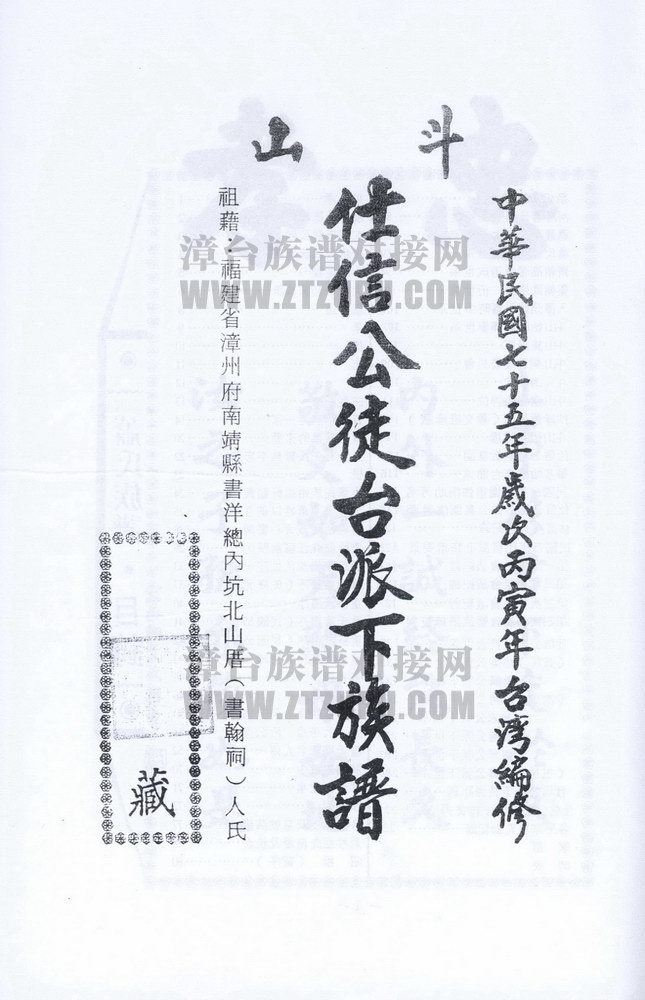 斗山
中華民國七十五年歲次丙寅年台灣編修
仕信公徒台派下族譜
祖藉：福建省漳州府南靖縣書洋總內坑北山厝（書翰祠）人氏
藏
漳台族谱对接网
WWW.ZTZUPU.COM
漳台族谱对接网
WWW.ZTZUPU.COM